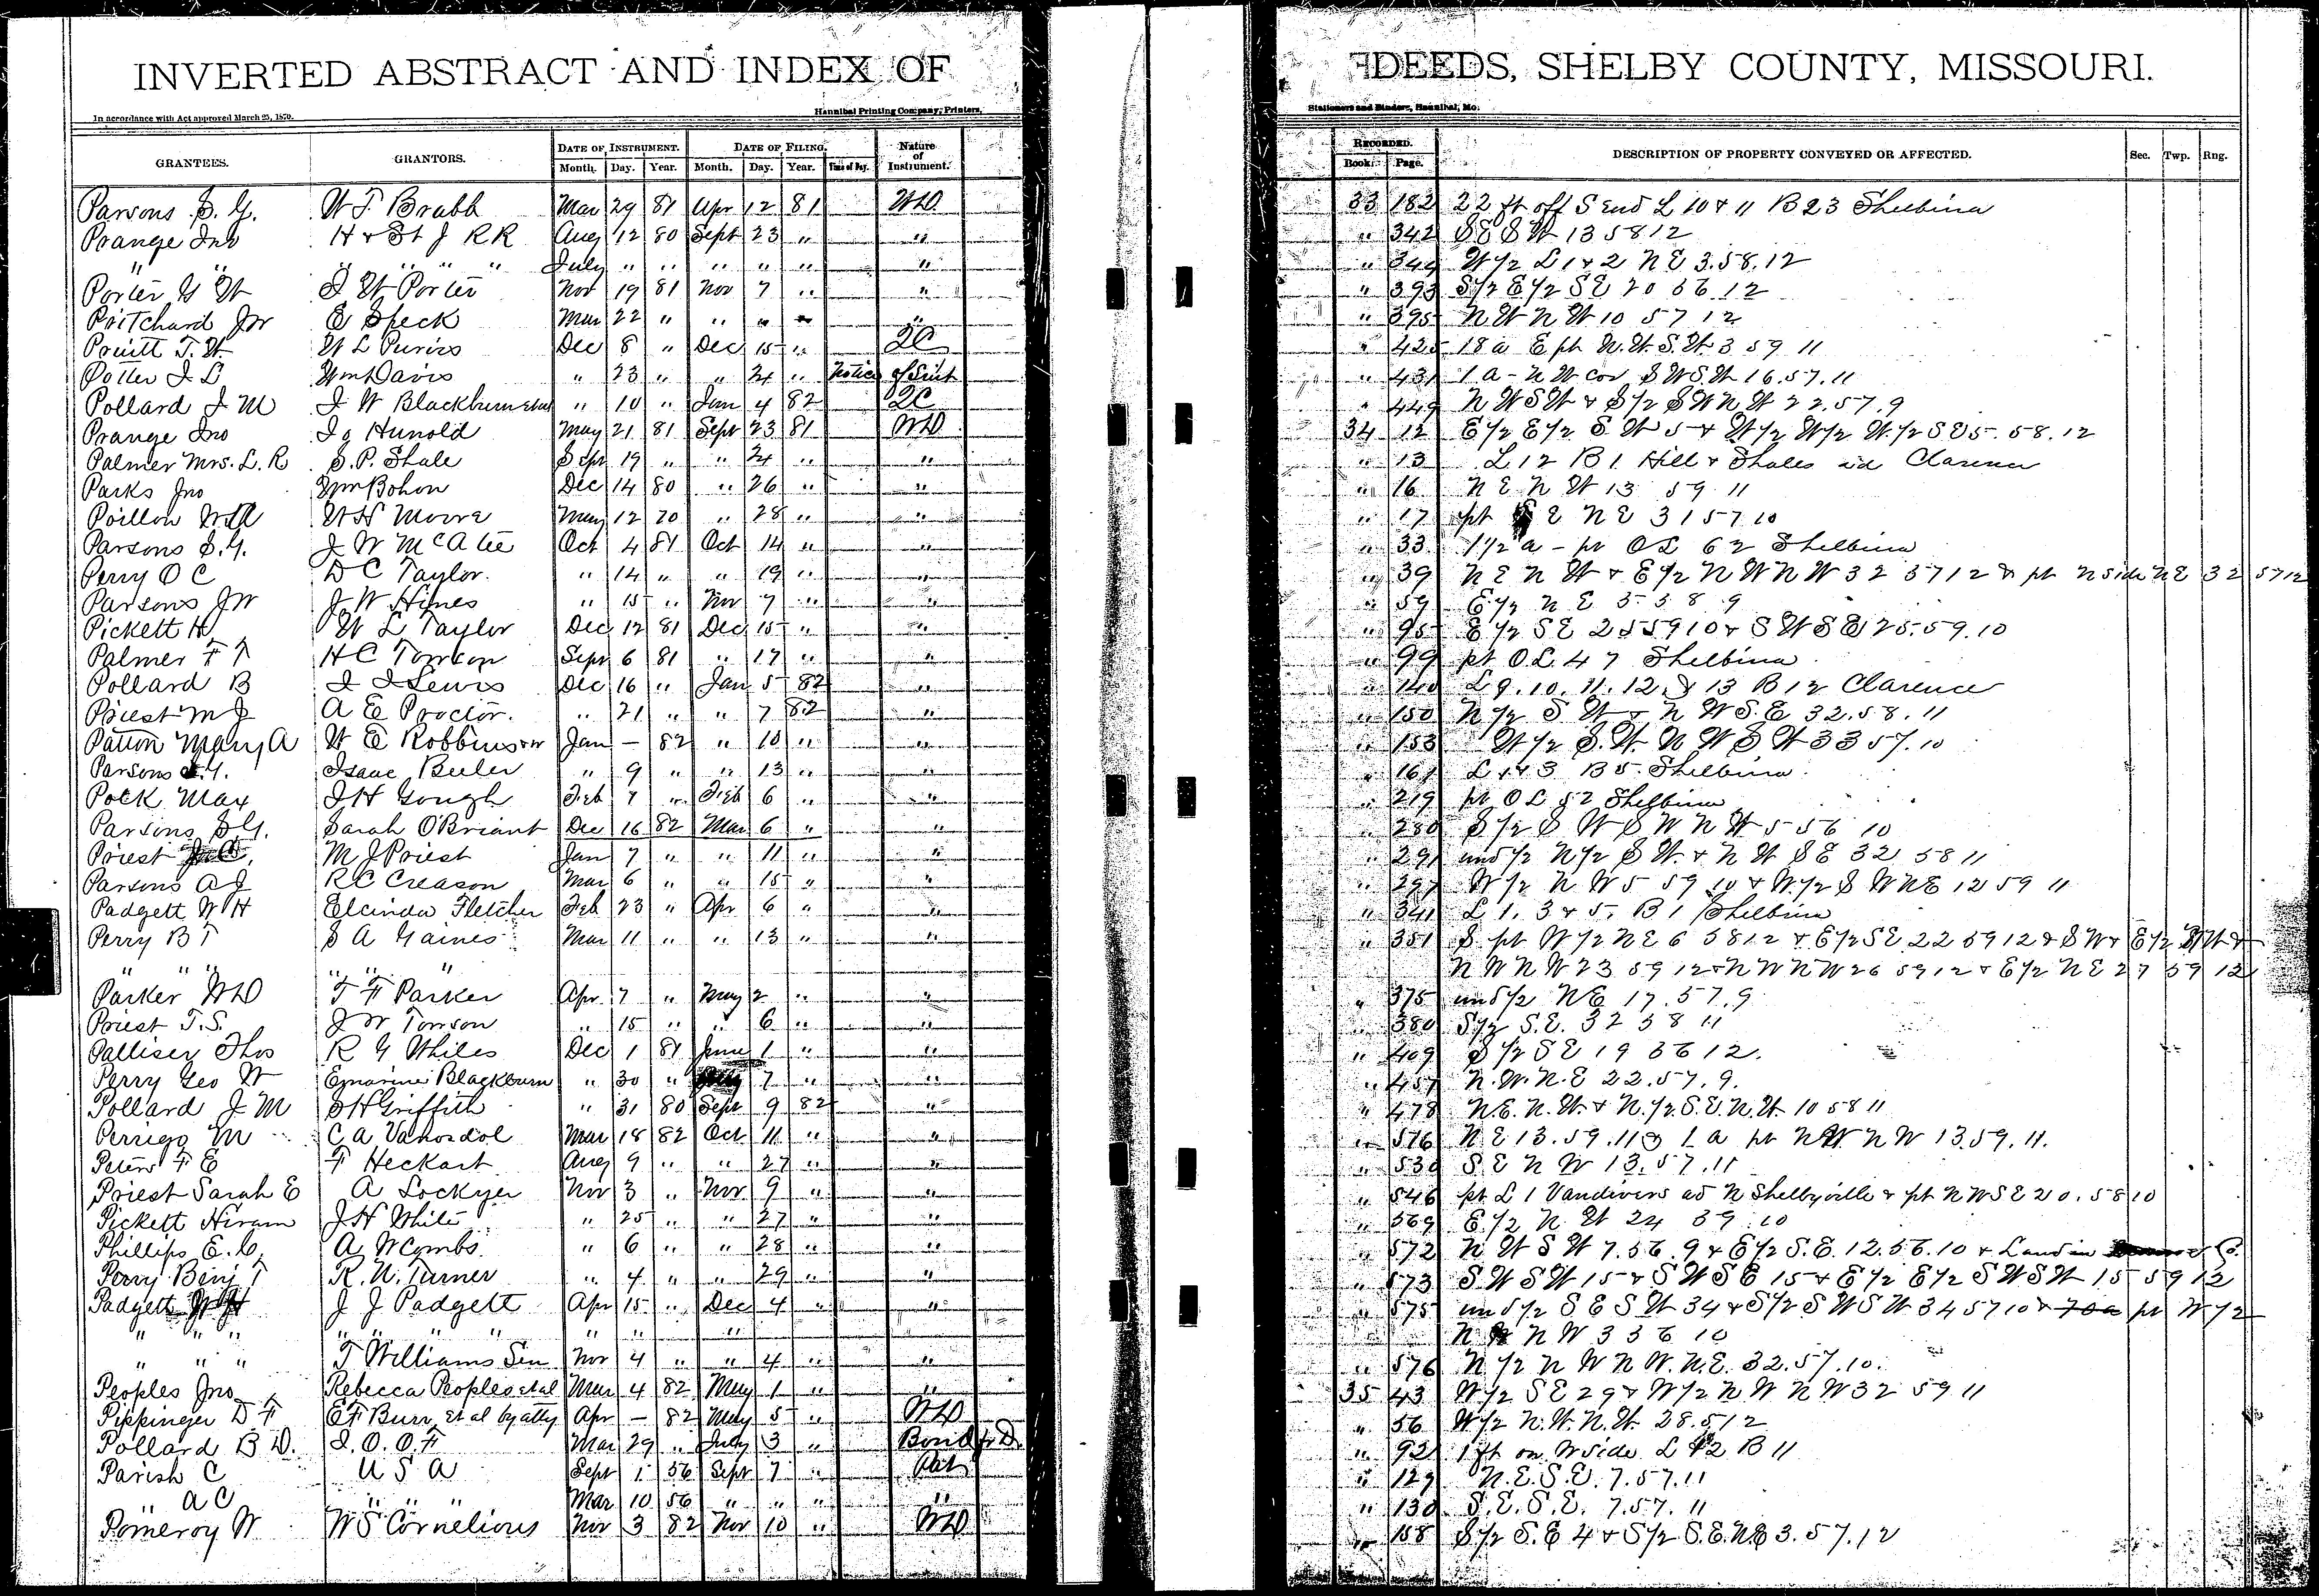 INVERTED ABSTRACT AND INDEX OF DEEDS, SHELBY COUNTY, MISSOURI.
In accordance with Act approved March 25, 1870. Hannibal Printing Company, Printers, Stationers and Binders, Hannibal, Mo.
GRANTEES. GRANTORS. DATE OF INSTRUMENT. DATE OF FILING. Nature of Instrument. RECORDED. DESCRIPTION OF PROPERTY CONVEYED OR AFFECTED. Sec. Twp. Rng.
Month. Day. Year. Month. Day. Year. Time of Day. Book. Page.
Parsons S. G. W T Brabb Mar 29 81 Apr 12 81 WD 33 182 22 ft off S end L 10 & 11 B 23 Shelbina
Prange Jno H & St J RR Aug 12 80 Sept 23 " " " 342 S E S W 13 58 12
" " " " " " July " " " " " " " 344 W 1/2 L 1 & 2 N E 3.58.12
Porter G W J W Porter Nov 19 81 Nov 7 " " " 393 S 1/2 E 1/2 S E 20 56 12
Pritchard Jw E Speck Mar 22 " " " " " " 395 N W N W 10 57 12
Pruitt T. W. W L Purvis Dec 8 " Dec 15 " QC " 425 18 a E pt N.W.S.W 3 59 11
Potter J L Wm Davis " 23 " " 24 " Notice of " 431 1 a - N W cor S W S W 16.57.11
Pollard J M J W Blackburn etal " 10 " Jan 4 82 QC " 449 N W S W & S 1/2 S W N W 22.57.9
Prange Jno Jo Hunold May 21 81 Sept 23 81 WD 34 12 E 1/2 E 1/2 S W 5 & W 1/2 W 1/2 W 1/2 S E 5. 58. 12
Palmer Mrs. L. R S. P. Shale Sept 19 " " 24 " " " 13 L 12 B 1 Hill & Shales ad Clarence
Parks Jno Wm Bohon Dec 14 80 " 26 " " " 16 N E N W 13 59 11
Poillon W H Moore May 12 70 " 28 " " " 17 pt E N E 31 57 10
Parsons S. G. J W McAtee Oct 4 81 Oct 14 " " " 33 1 1/2 a - pt O L 62 Shelbina
Perry O C D C Taylor. " 14 " " 19 " " " 39 N E N W & E 1/2 N W N W 32 57 12 & pt N side N E 32 57 12
Parsons JW J. W Himes " 15 " Nov 7 " " " 59 E 1/2 N E 5 58 9
Pickett H W L Taylor Dec 12 81 Dec 15 " " " 95 E 1/2 S E 25 59 10 & S W S E 25.59.10
Palmer F T H C Tomson Sept 6 81 " 17 " " " 99 pt O.L. 47 Shelbina
Pollard B J J Lewis Dec 16 " Jan 5 82 " " 140 L 9. 10. 11. 12. & 13 B 12 Clarence
Priest M J A E Proctor. " 21 " " 7 82 " " 150 N 1/2 S W & N W S. E 32.58.11
Patton Mary A W E Robbinson Jan - 82 " 10 " " " 153 W 1/2 S. W. N W S W 33 57. 10
Parsons S. G. Isaac Beeler " 9 " " 13 " " " 161 L 1 & 3 B 5 Shelbina
Pock Max J H Gough Feb " Feb 6 " " " 219 pt O L 52 Shelbina
Parsons S G. Sarah O'Briant Dec 16 82 Mar 6 " " " 280 S 1/2 S W S W N W 5 56 10
Priest M J Priest Jan 7 " " 11 " " " 291 und 1/2 N 1/2 S W. & N W S E 32 58 11
Parsons A J R C Creason Mar 6 " " 15 " " " 297 W 1/2 N W 5 59 10 & W. 1/2 S W N E 12 59 11
Padgett W H Elcinda Fletcher Feb 23 " Apr 6 " " " 341 L 1. 3 & 5. B 1 Shelbina
Perry B T S A Gaines Mar 11 " " 13 " " " 351 S pt W 1/2 N E 6 58 12 & E 1/2 S E 22 59 12 & S W & E 1/2 N W &
" " " " " " N W N W 23 59 12 & N W N W 26 59 12 & E 1/2 N E 27 59 12
Parker WD T F Parker Apr 7 " May 2 " " " 375 und 1/2 N E 17. 57. 9
Priest T. S. J W Tomson " 15 " " 6 " " " 380 S 1/2 S. E. 32 58 11
Palliser Thos R G Whiles Dec 1 81 June 1 " " " 409 S 1/2 S E 19 56 12.
Perry Geo W Emarine Blackburn " 30 " 7 " " " 457 N. W. N. E 22.57.9.
Pollard J M S H Griffith " 31 80 Sept 9 82 " " 478 N E. N. W. & N. 1/2 S. E. N. W. 10 58 11
Perrigo M C A Vanosdol Mar 18 82 Oct 11 " " " 516 N E 13.59.11 & 1 a pt N W N W 13.59.11.
Peters F E F Heckart Aug 9 " " 27 " " " 530 S. E N W 13.57.11
Priest Sarah E A Lockyer Nov 3 " Nov 9 " " " 546 pt L 1 Vandivers ad N Shelbyville & pt N W S E 20. 58 10
Pickett Hiram J H White " 25 " " 27 " " " 569 E. 1/2 N. W 24 59. 10
Phillips E. C. A W Combs " 6 " " 28 " " " 572 N W S W 7.56.9 & E 1/2 S. E. 12.56.10 & Land in Co.
Perry Benj T R. W. Turner " 4 " " 29 " " " 573 S W S W 15 & S W S E 15 & E 1/2 E 1/2 S W S W 15 59 12
Padgett J J Padgett Apr 15 " Dec 4 " " " 575 und 1/2 S E S W 34 & S 1/2 S W S W 34 57 10 & 70a pt W 1/2
" " " " " " " " " " " N N W 3 56 10
" " " T Williams Sen Nov 4 " " 4 " " " 576 N 1/2 N W N W. N. E. 32.57.10.
Peoples Jno Rebecca Peoples etal Mar 4 82 May 1 " " 35 43 W 1/2 S E 29 & W 1/2 N W N W 32 59 11
Pippinger D F E F Burr, et al by atty Apr - 82 May 5 " WD " 56 W 1/2 N. W. N. W. 28.5 12
Pollard B D. I. O. O. F Mar 29 " July 3 " Bond for D " 92 1 ft on W side L 2 B 11
Parish C U S A Sept 1 56 Sept 7 " Pat " 129 N. E. S. E. 7.57.11
" A C " " " Mar 10 56 " " " " " 130 S. E. S. E. 7.57. 11
Pomeroy W W S Cornelious Nov 3 82 Nov 10 " WD " 158 S 1/2 S. E 4 & S 1/2 S. E. N. E 3. 57. 12